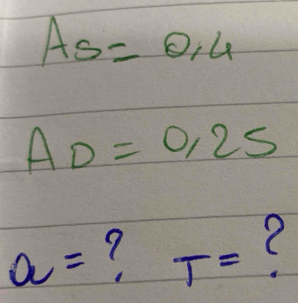 As = 0,4
AD = 0,25
a = ? T = ?